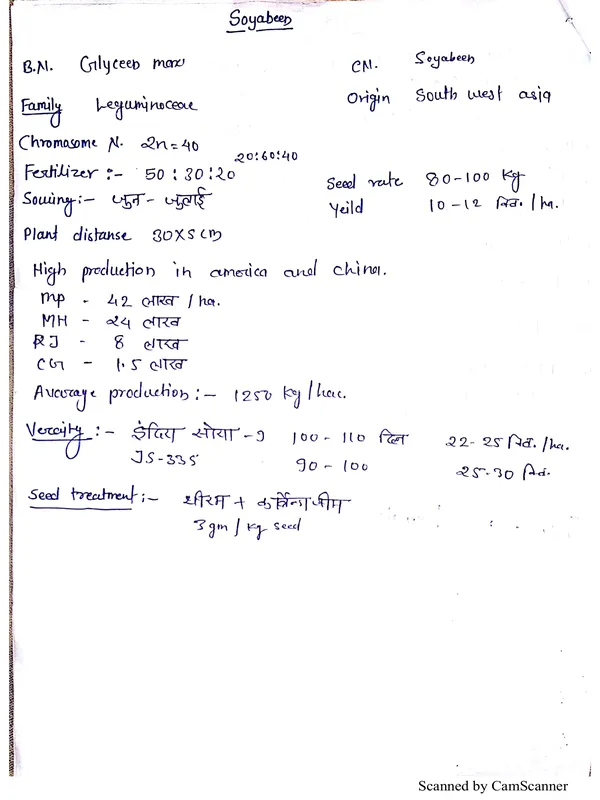 Soyabeen
B.N. Glyceen max C.N. Soyabeen
Family Leguminoceae Origin South west asia
Chromasome N. 2n=40
20:60:40
Fertilizer :- 50:30:20 Seed rate 80-100 Kg
Souing:- जुन - जुलाई Yeild 10-12 क्विं. /ha.
Plant distanse 30x5 cm
High production in america and china.
MP - 42 लाख /ha.
MH - 24 लाख
RJ - 8 लाख
CG - 1.5 लाख
Avearage production:- 1250 kg/hac.
Veraity:- इंदिरा सोया-9 100-110 दिन 22-25 क्विं. /ha.
JS-335 90-100 25-30 क्विं.
Seed treatment:- थीरम +
3gm / kg seed
Scanned by CamScanner